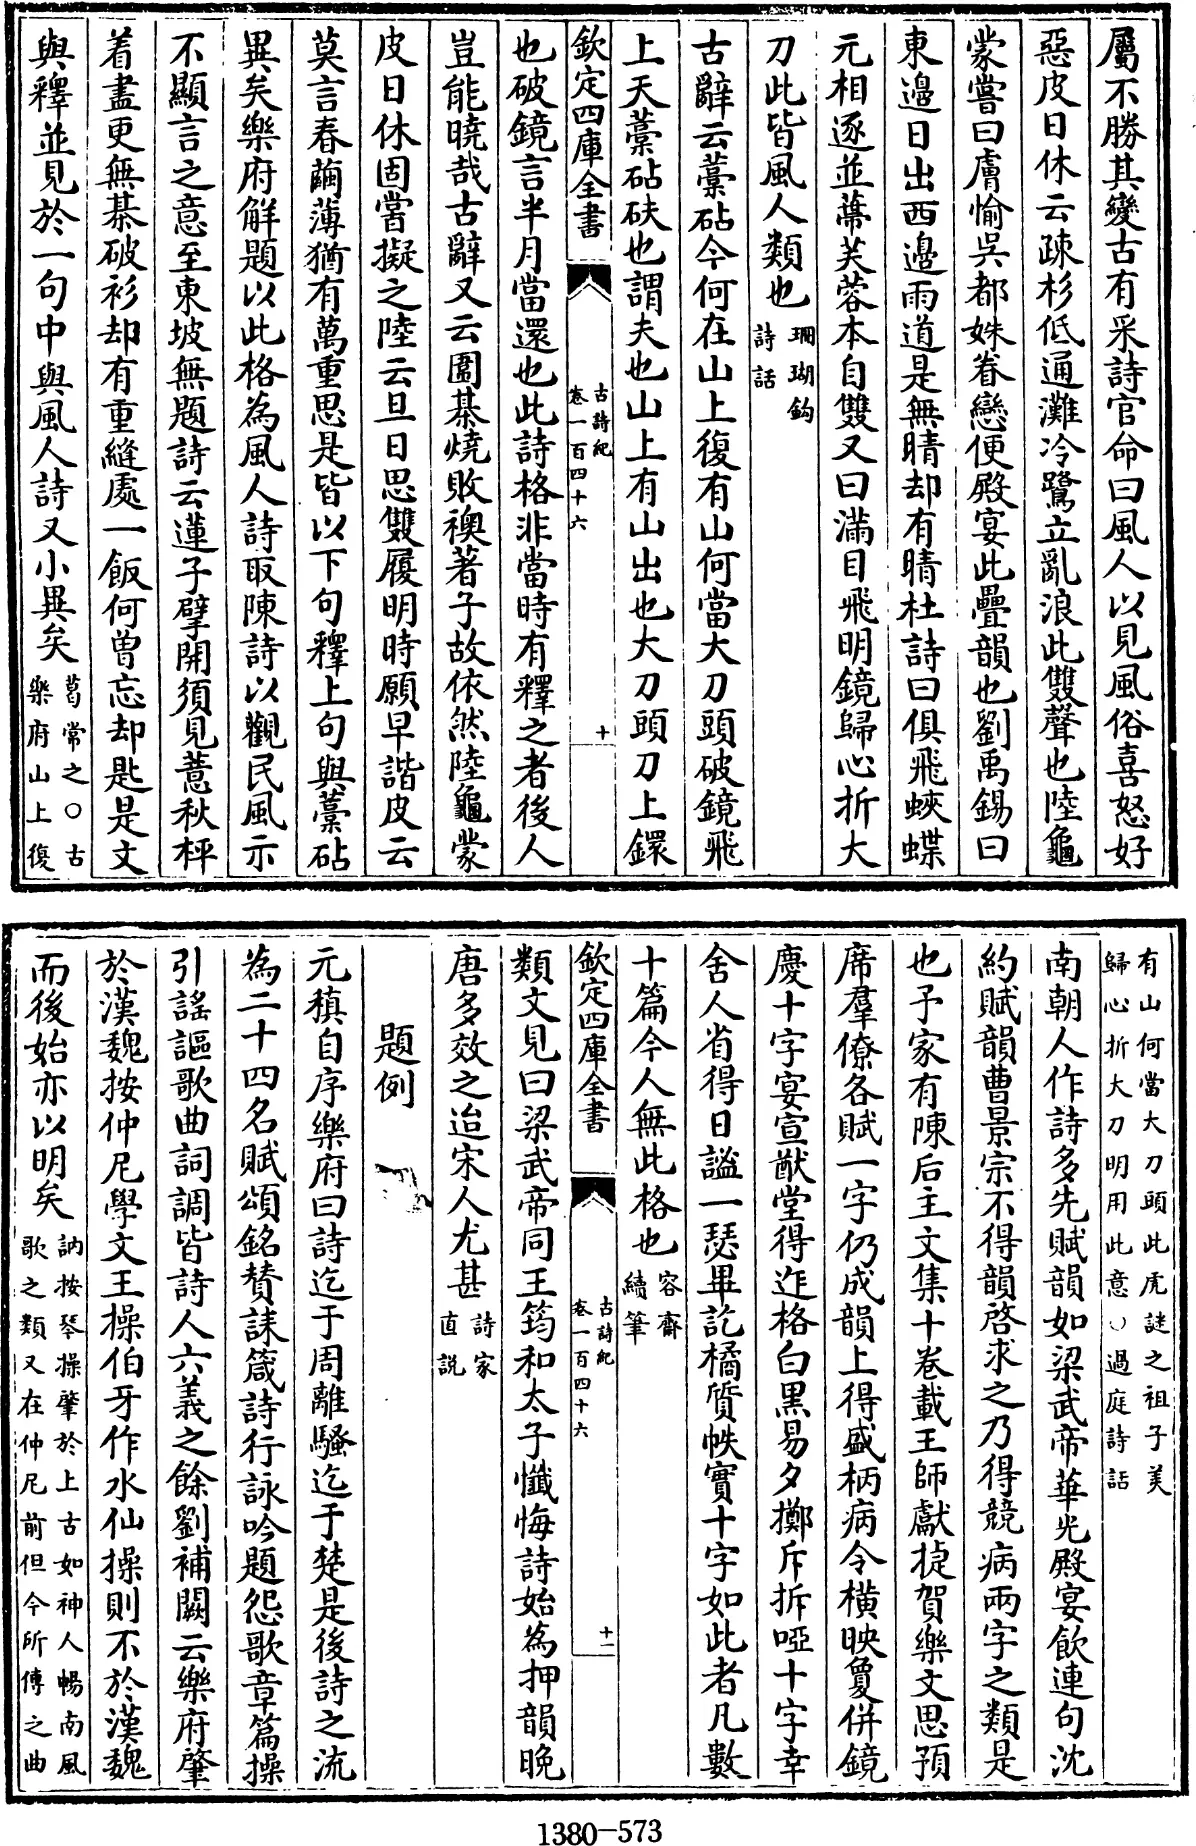 屬不勝其變古有采詩官命曰風人以見風俗喜怒好
惡皮日休云疎杉低通灘冷鷺立亂浪此雙聲也陸龜
蒙嘗曰膚愉吳都姝眷戀便殿宴此疊韻也劉禹錫曰
東邉日出西邉雨道是無晴却有晴杜詩曰俱飛蛺蝶
元相逐並蔕芙蓉本自雙又曰滿目飛明鏡歸心折大
刀此皆風人類也珊瑚鈎
詩話
古辭云藁砧今何在山上復有山何當大刀頭破鏡飛
上天藁砧砆也謂夫也山上有山出也大刀頭刀上鐶
欽定四庫全書
古詩紀
卷一百四十六
十
也破鏡言半月當還也此詩格非當時有釋之者後人
豈能曉哉古辭又云圍棊燒敗襖著子故依然陸龜蒙
皮日休固嘗擬之陸云旦日思雙履明時願早諧皮云
莫言春繭薄猶有萬重思是皆以下句釋上句與藁砧
異矣樂府解題以此格為風人詩取陳詩以觀民風示
不顯言之意至東坡無題詩云蓮子擘開須見薏秋枰
着盡更無棊破衫却有重縫處一飯何曽忘却匙是文
與釋並見於一句中與風人詩又小異矣葛常之○古
樂府山上復
有山何當大刀頭此虎謎之祖子美
歸心折大刀明用此意○過庭詩話
南朝人作詩多先賦韻如梁武帝華光殿宴飲連句沈
約賦韻曹景宗不得韻啓求之乃得競病兩字之類是
也予家有陳后主文集十卷載王師獻捷賀樂文思預
席羣僚各賦一字仍成韻上得盛柄病令橫映夐併鏡
慶十字宴宣猷堂得迮格白黑易夕擲斥拆啞十字幸
舍人省得日謐一瑟畢訖橘質帙實十字如此者凡數
十篇今人無此格也容齋
續筆
欽定四庫全書
古詩紀
卷一百四十六
十一
類文見曰梁武帝同王筠和太子懺悔詩始為押韻晚
唐多效之迨宋人尤甚詩家
直説
題例
元稹自序樂府曰詩迄于周離騷迄于楚是後詩之流
為二十四名賦頌銘贊誄箴詩行詠吟題怨歎章篇操
引謡謳歌曲詞調皆詩人六義之餘劉補闕云樂府肇
於漢魏按仲尼學文王操伯牙作水仙操則不於漢魏
而後始亦以明矣訥按琴操肇於上古如神人暢南風
歌之類又在仲尼前但今所傳之曲
1380—573